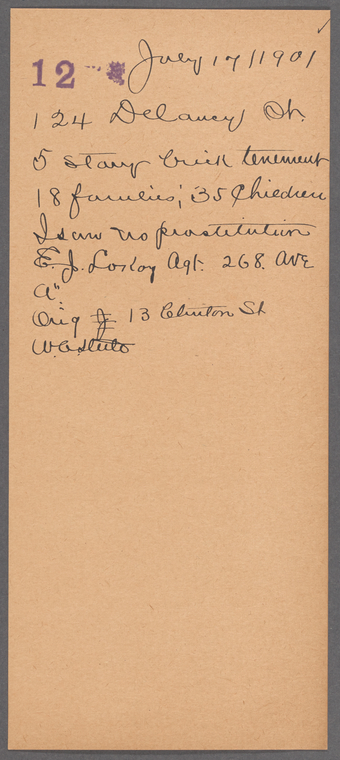 12
July 17/1901
124 Delancey St.
5 story brick tenement
18 families; 35 Children
I saw no prostitution
E. J. Agt. 268. Ave
A".
13 Clinton St